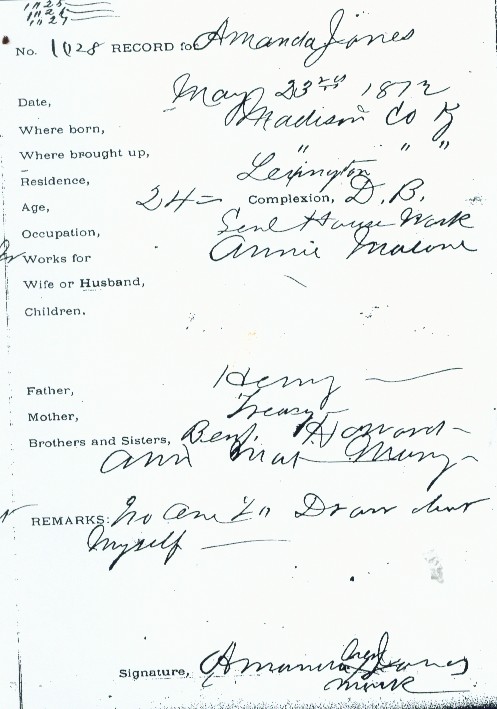 1025
1026
1027
No. 1028 RECORD for Amanda Jones
Date, May 23rd 1872
Where born, Madison Co Ky
Where brought up, " " "
Residence, Lexington
Age, 24 = Complexion, D. B.
Occupation, Genl House Work
Works for Annie Malone
Wife or Husband,
Children,
Father, Henry
Mother,
Brothers and Sisters, Benj. Howard
Ann Mat Mary
REMARKS: No one to Draw but
Myself
Signature, Amanda her Jones
mark